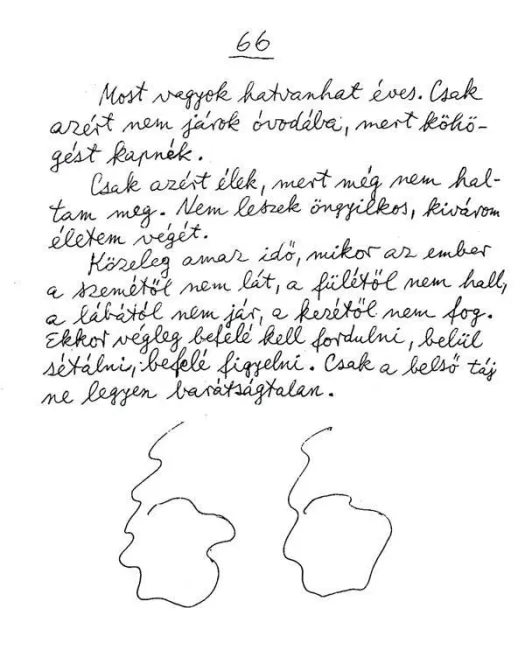 66
Most vagyok hatvanhat éves. Csak
azért nem járok óvodába, mert köhö-
gést kapnék.
Csak azért élek, mert még nem hal-
tam meg. Nem leszek öngyilkos, kivárom
életem végét.
Közeleg amaz idő, mikor az ember
a szemétől nem lát, a fülétől nem hall,
a lábától nem jár, a kezétől nem fog.
Ekkor végleg befelé kell fordulni, belül
sétálni, befelé figyelni. Csak a belső táj
ne legyen barátságtalan.
66